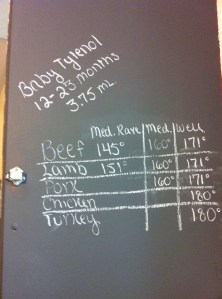 Baby Tylenol
12-23 months
3.75 mL
Med. Rare Med. Well
Beef 145° 160° 171°
Lamb 151° 160° 171°
Pork 160° 171°
Chicken 180°
Turkey 180°